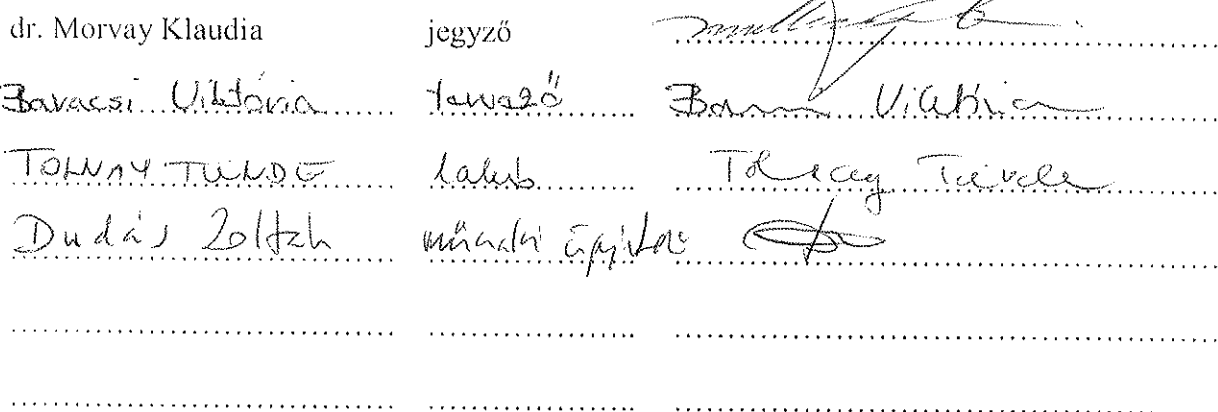 dr. Morvay Klaudia jegyző
Baracsi Viktória Viktória
TOLNAY TÜNDE lakos Tolnay Tünde
Dudás Zoltán műszaki ügyintéző